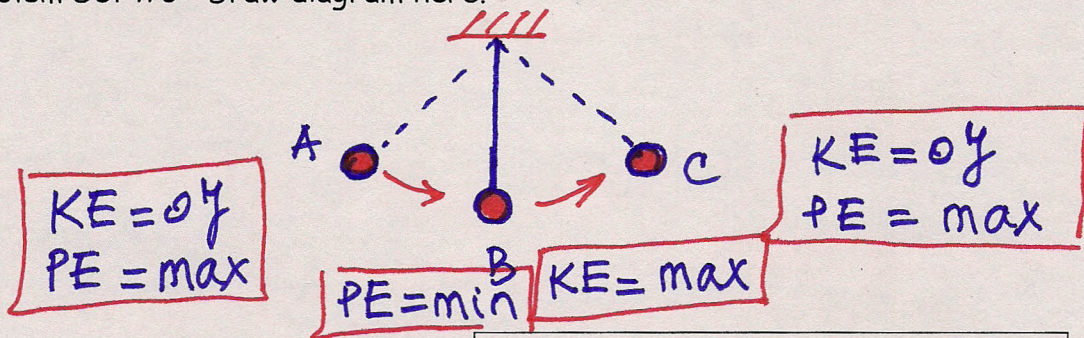 Draw diagram here.
A
KE = 0J
PE = max
B
PE = min
KE = max
C
KE = 0J
PE = max